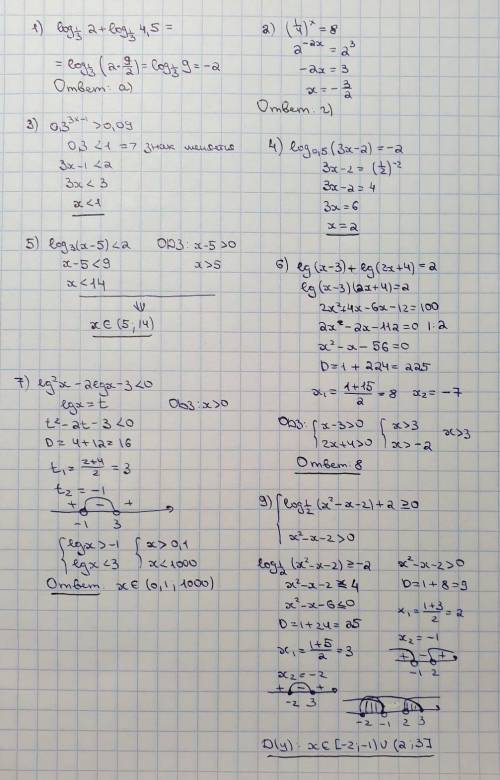 1) log_{1/3} 2 + log_{1/3} 4,5 =
= log_{1/3} (2·9/2) = log_{1/3} 9 = -2
Ответ: а)
2) (1/4)^x = 8
2^{-2x} = 2^3
-2x = 3
x = -3/2
Ответ: г)
3) 0,3^{3x-1} > 0,09
0,3 < 1 => знак
3x-1 < 2
3x < 3
x < 1
4) log_{0,5} (3x-2) = -2
3x-2 = (1/2)^{-2}
3x-2 = 4
3x = 6
x = 2
5) log_3 (x-5) < 2 ОДЗ: x-5 > 0
x-5 < 9 x > 5
x < 14
⇓
x ∈ (5; 14)
6) lg (x-3) + lg (2x+4) = 2
lg (x-3)(2x+4) = 2
2x²+4x-6x-12 = 100
2x²-2x-112 = 0 |:2
x²-x-56 = 0
D = 1+224 = 225
x₁ = (1+15)/2 = 8 x₂ = -7
ОДЗ: { x-3>0 { x>3 x>3
{ 2x+4>0 { x>-2
Ответ: 8
7) lg²x - 2lgx - 3 < 0
lgx = t ОДЗ: x>0
t²-2t-3 < 0
D = 4+12 = 16
t₁ = (2+4)/2 = 3
t₂ = -1
+ - +
-1 3
{ lgx > -1 { x > 0,1
{ lgx < 3 { x < 1000
Ответ: x ∈ (0,1; 1000)
9) { log_{1/2} (x²-x-2) + 2 ≥ 0
{ x²-x-2 > 0
log_{1/2} (x²-x-2) ≥ -2
x²-x-2 ≤ 4
x²-x-6 ≤ 0
D = 1+24 = 25
x₁ = (1+5)/2 = 3
x₂ = -2
+ - +
-2 3
x²-x-2 > 0
D = 1+8 = 9
x₁ = (1+3)/2 = 2
x₂ = -1
+ - +
-1 2
-2 -1 2 3
D(y): x ∈ [-2; -1) ∪ (2; 3]